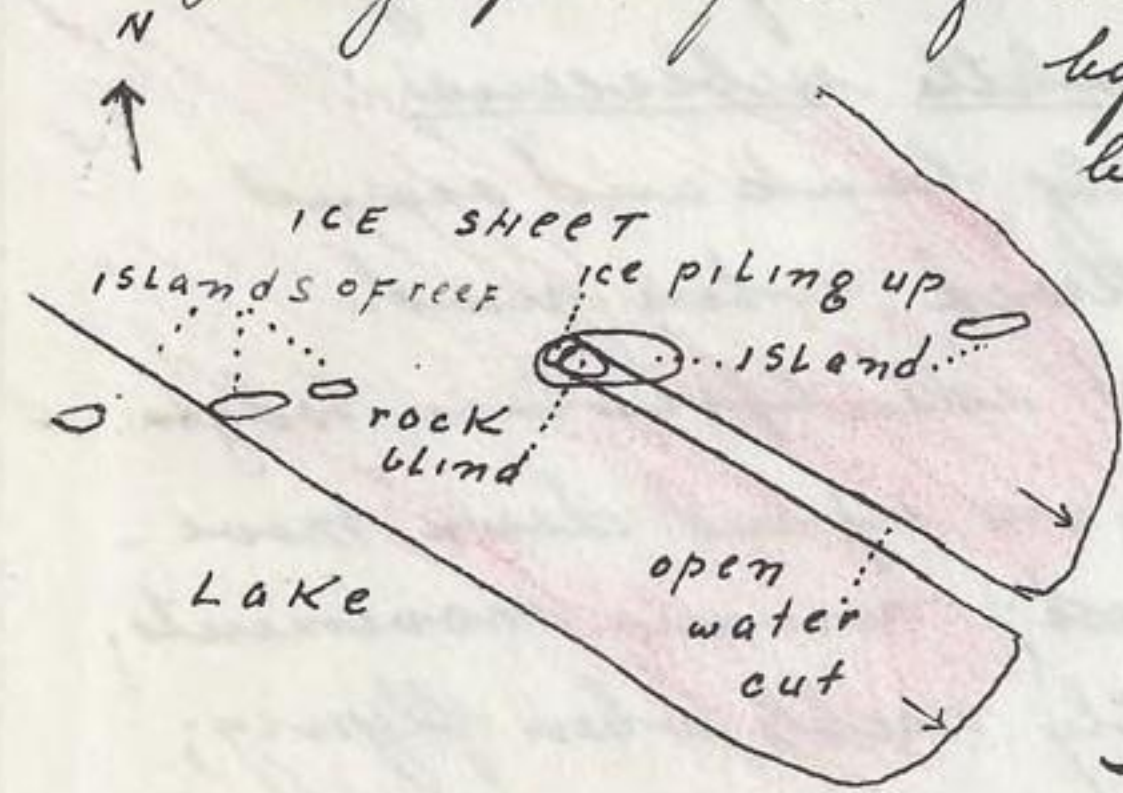 N
ICE SHEET
ISLands OF reef
ice piLing up
ISLand
rock
bLind
open
water
cut
LaKe